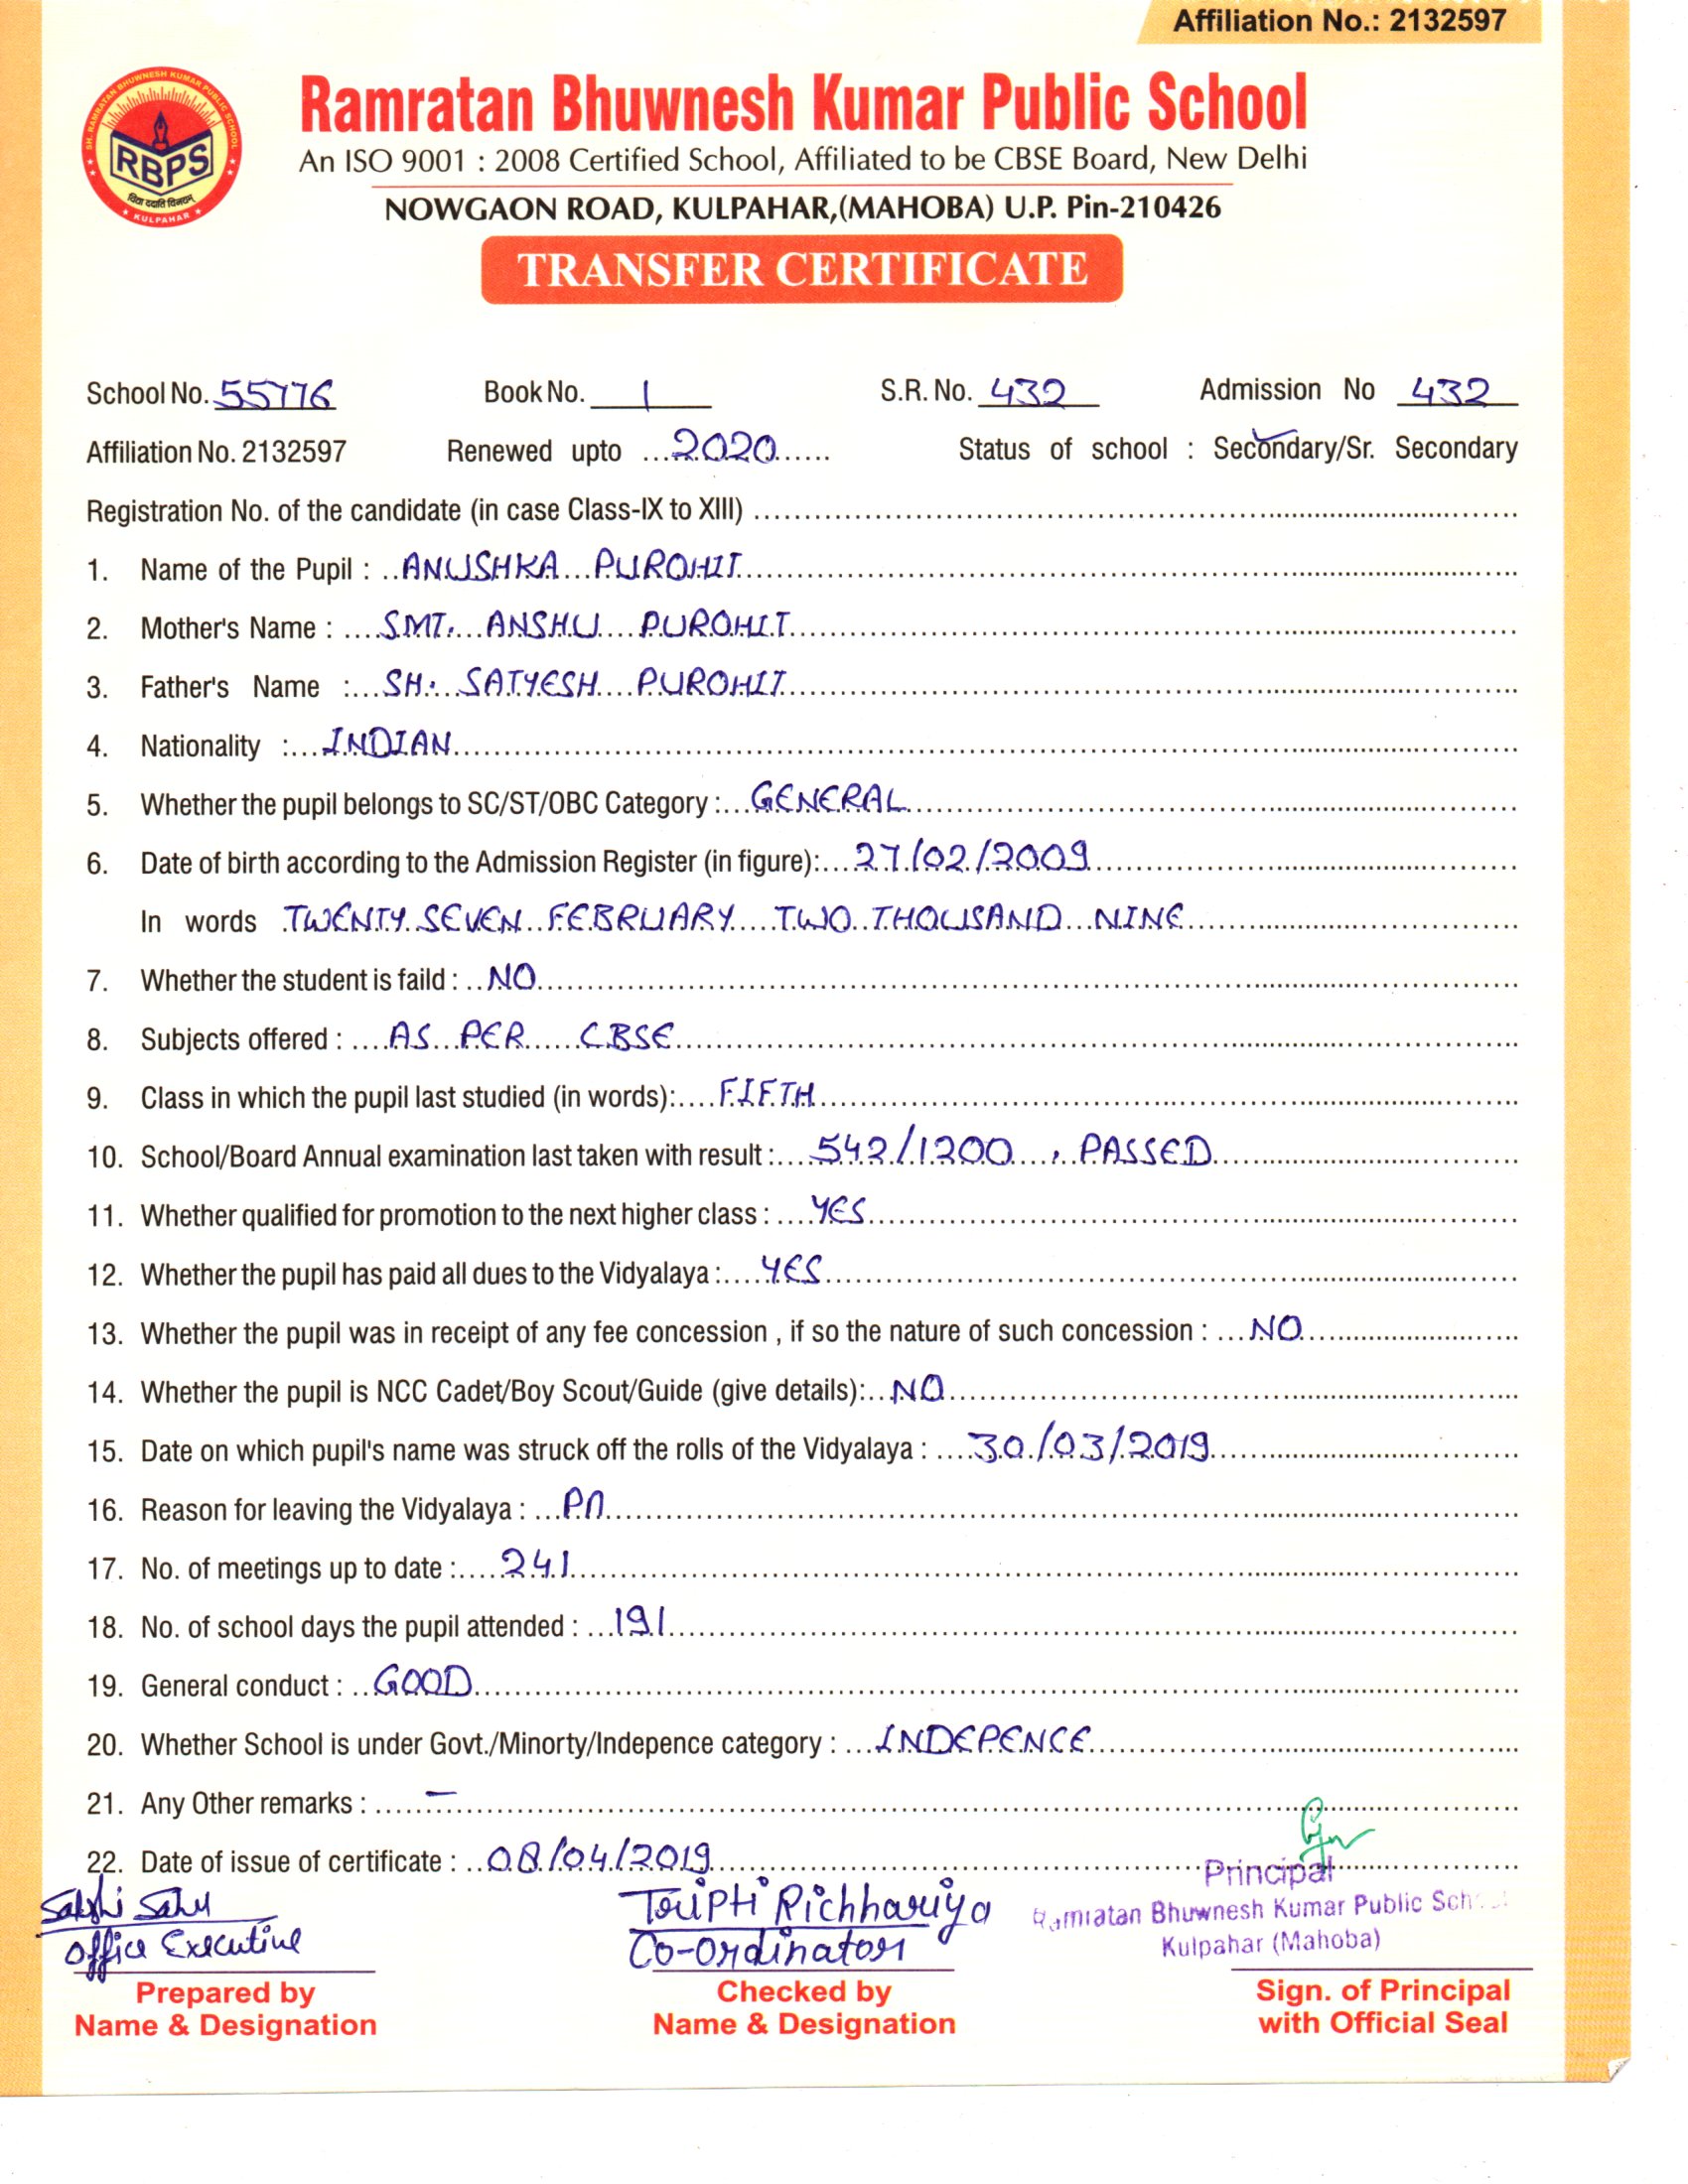 Affiliation No.: 2132597
SH. RAMRATAN BHUWNESH KUMAR PUBLIC SCHOOL
RBPS
विद्या ददाति विनयम्
KULPAHAR
Ramratan Bhuwnesh Kumar Public School
An ISO 9001 : 2008 Certified School, Affiliated to be CBSE Board, New Delhi
NOWGAON ROAD, KULPAHAR,(MAHOBA) U.P. Pin-210426
TRANSFER CERTIFICATE
School No. 55776 Book No. 1 S.R. No. 432 Admission No 432
Affiliation No. 2132597 Renewed upto ...2020...... Status of school : Secondary/Sr. Secondary
Registration No. of the candidate (in case Class-IX to XIII) ..........
1. Name of the Pupil : ANUSHKA PUROHIT
2. Mother's Name : SMT. ANSHU PUROHIT
3. Father's Name : SH. SATYESH PUROHIT
4. Nationality : INDIAN
5. Whether the pupil belongs to SC/ST/OBC Category : GENERAL
6. Date of birth according to the Admission Register (in figure): 27/02/2009
In words TWENTY SEVEN FEBRUARY TWO THOUSAND NINE
7. Whether the student is faild : NO
8. Subjects offered : AS PER CBSE
9. Class in which the pupil last studied (in words): FIFTH
10. School/Board Annual examination last taken with result : 542/1200 , PASSED
11. Whether qualified for promotion to the next higher class : YES
12. Whether the pupil has paid all dues to the Vidyalaya : YES
13. Whether the pupil was in receipt of any fee concession , if so the nature of such concession : NO
14. Whether the pupil is NCC Cadet/Boy Scout/Guide (give details): NO
15. Date on which pupil's name was struck off the rolls of the Vidyalaya : 30/03/2019
16. Reason for leaving the Vidyalaya :
17. No. of meetings up to date : 241
18. No. of school days the pupil attended : 191
19. General conduct : GOOD
20. Whether School is under Govt./Minorty/Indepence category : INDEPENCE
21. Any Other remarks : –
22. Date of issue of certificate : 08/04/2019
Sakshi Sahu
Office Executive
Toripti Richhariya
Co-ordinator
Principal
Ramratan Bhuwnesh Kumar Public
Kulpahar (Mahoba)
Prepared by
Name & Designation
Checked by
Name & Designation
Sign. of Principal
with Official Seal